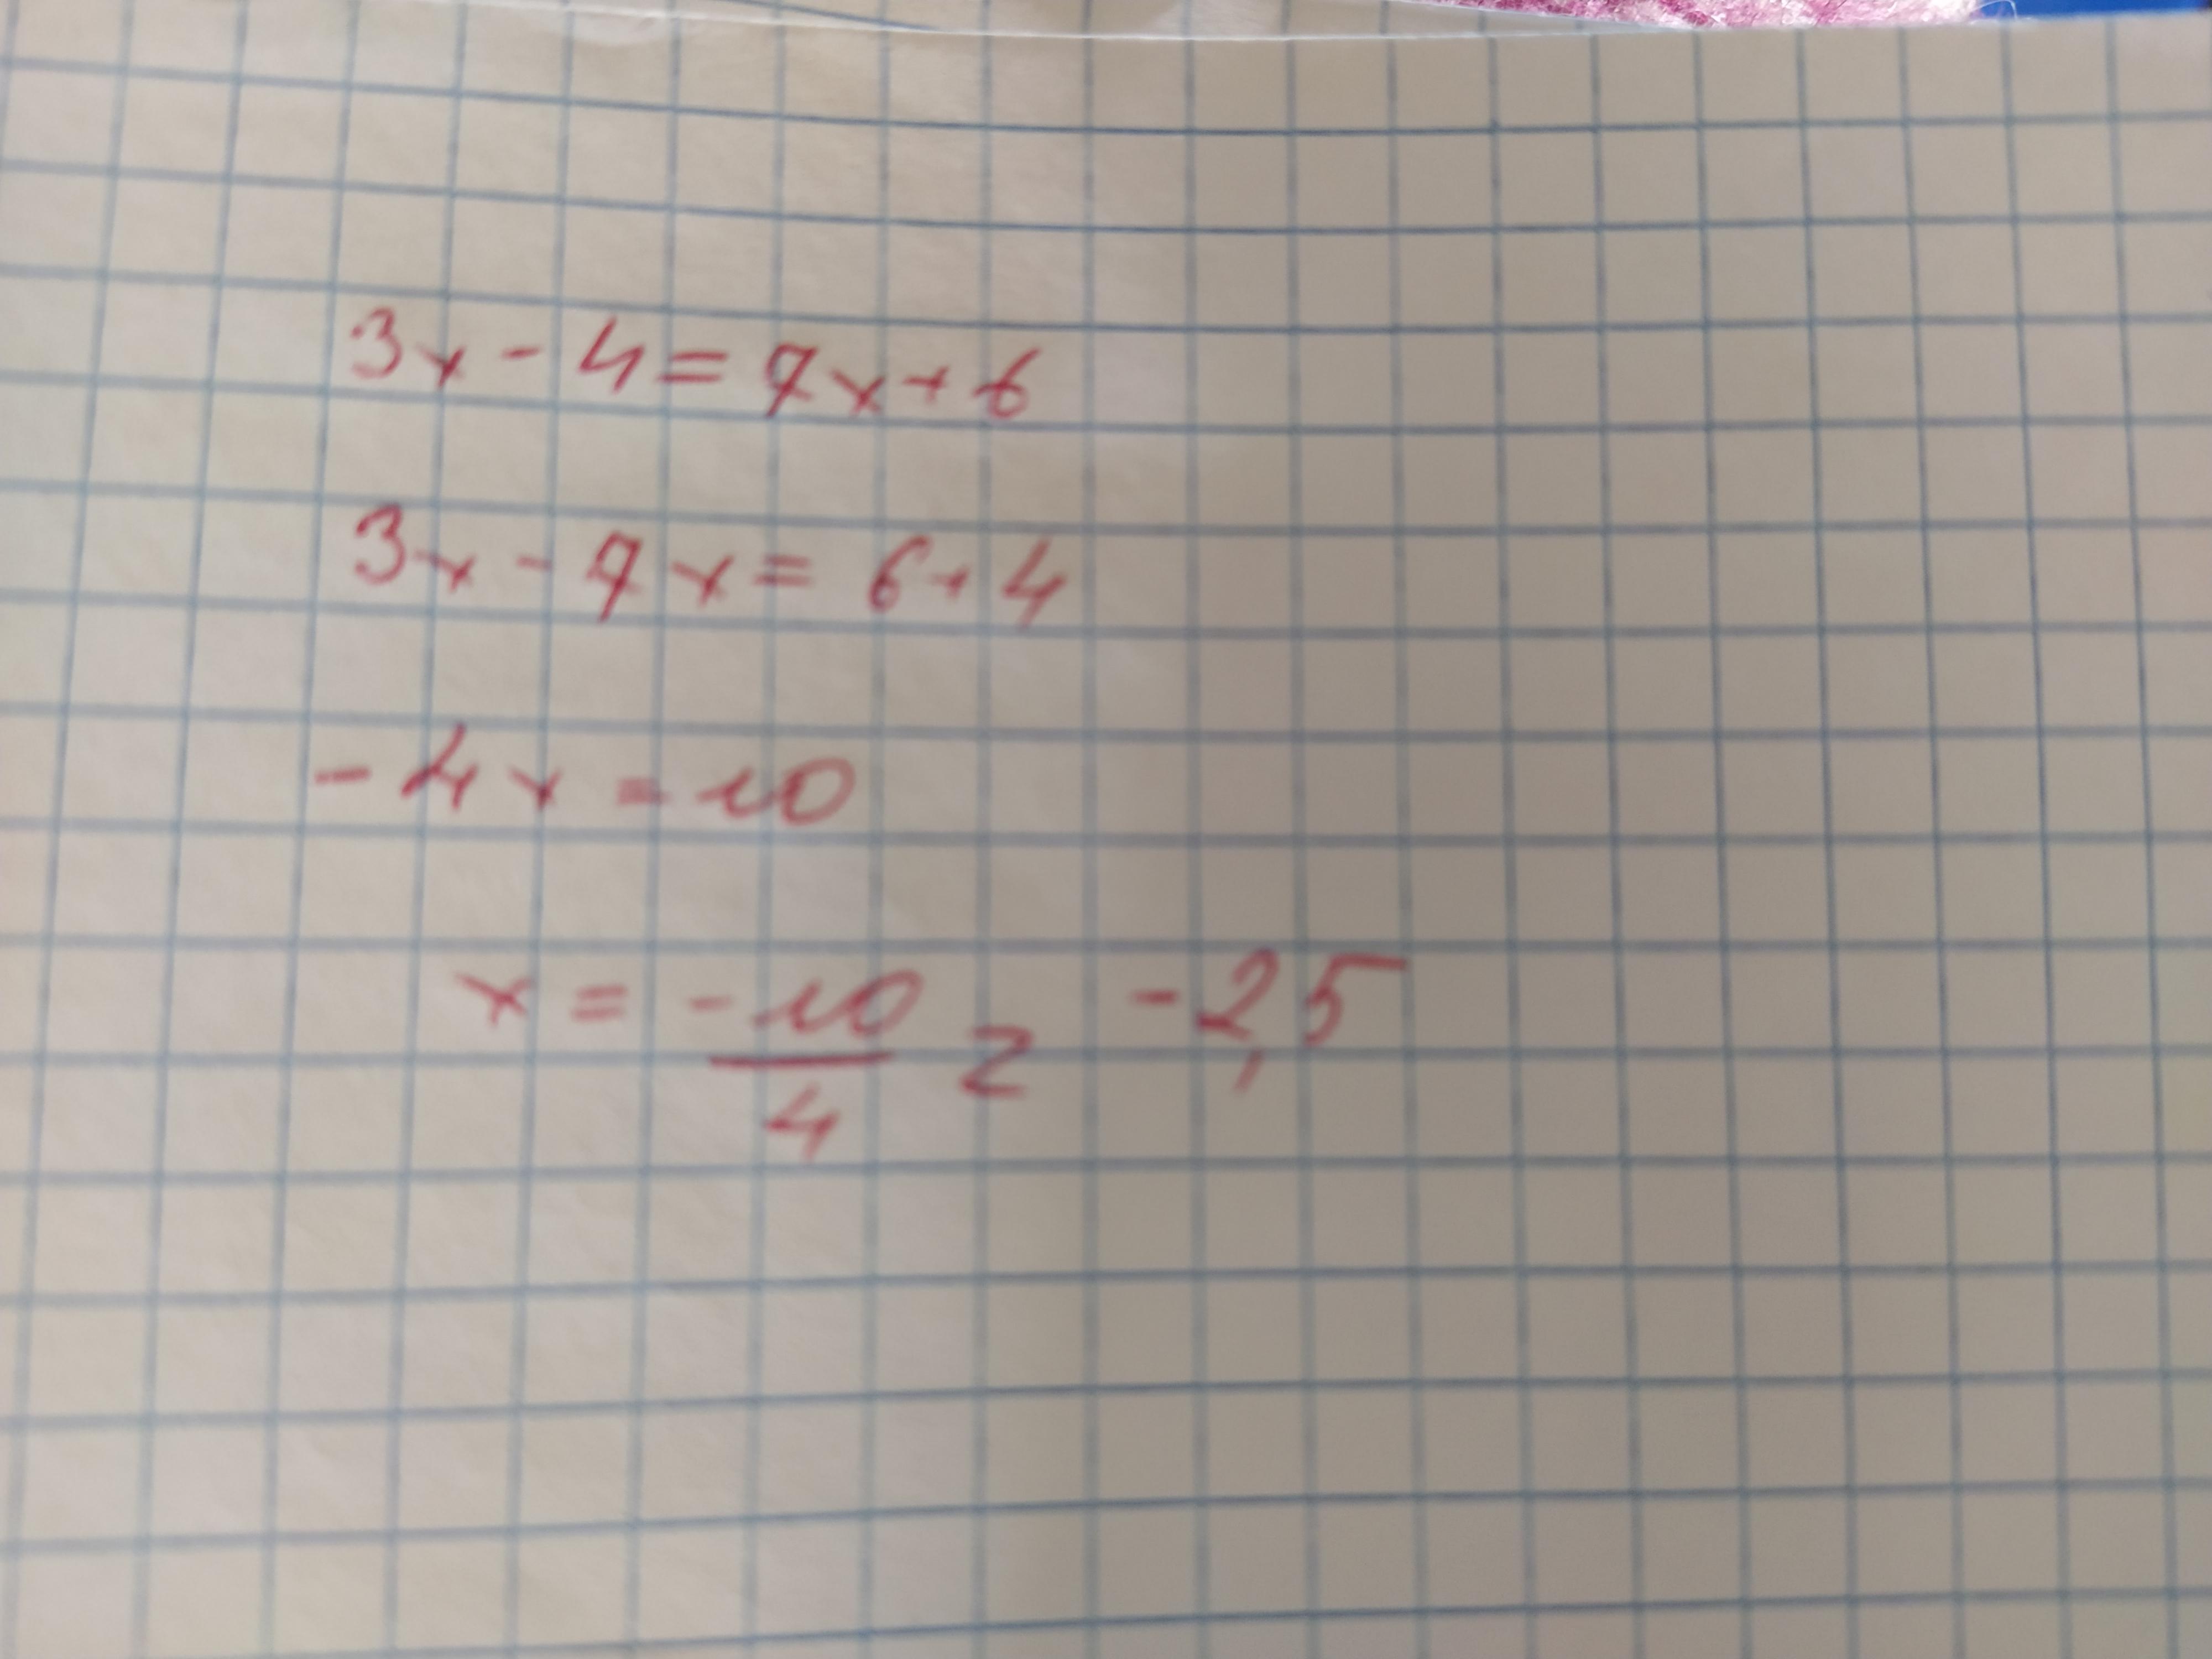 3x - 4 = 7x + 6
3x - 7x = 6 + 4
- 4x = 10
x = -10/4 = -2,5